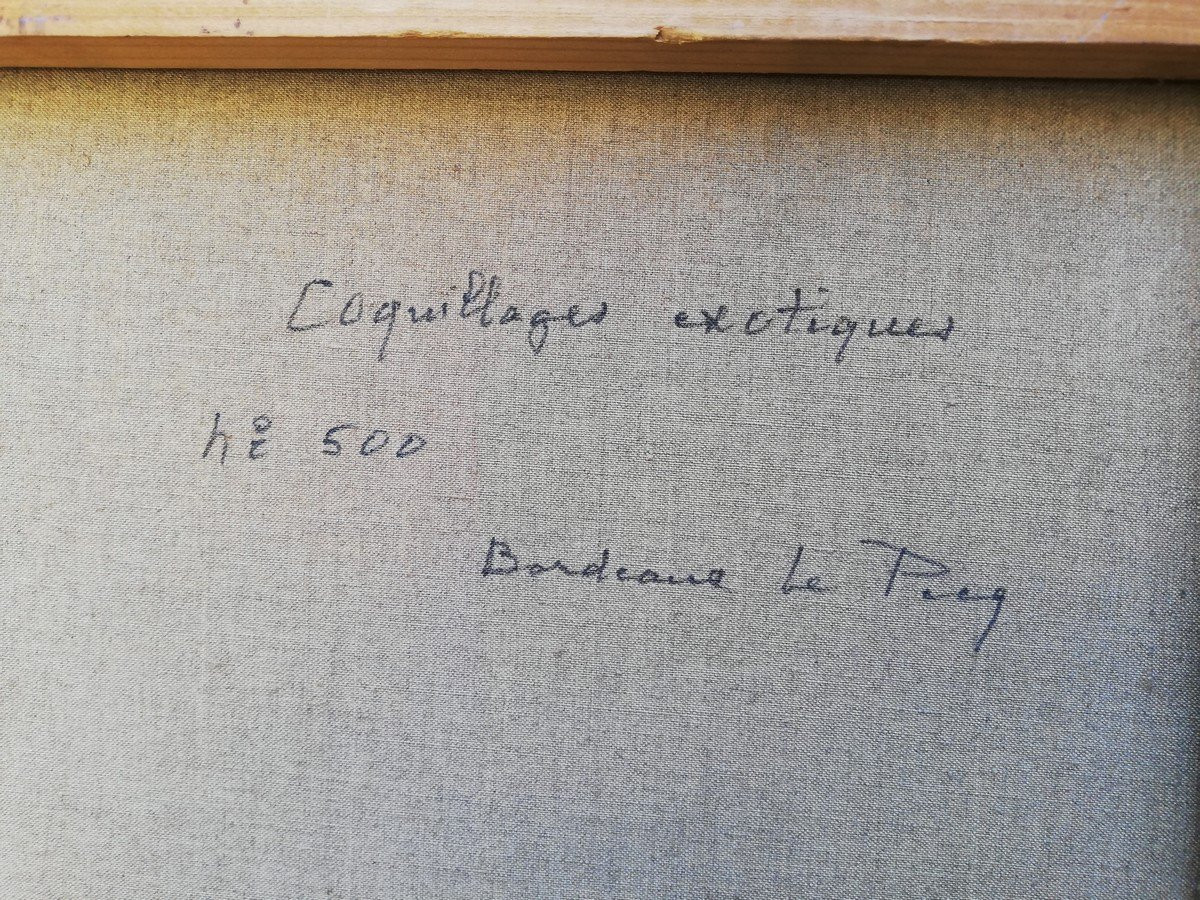 Coquillages exotiques
n° 500
Bordeaux Le Pecq